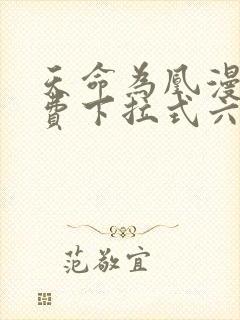 天命為凰漫
費下拉式六
范敬宜